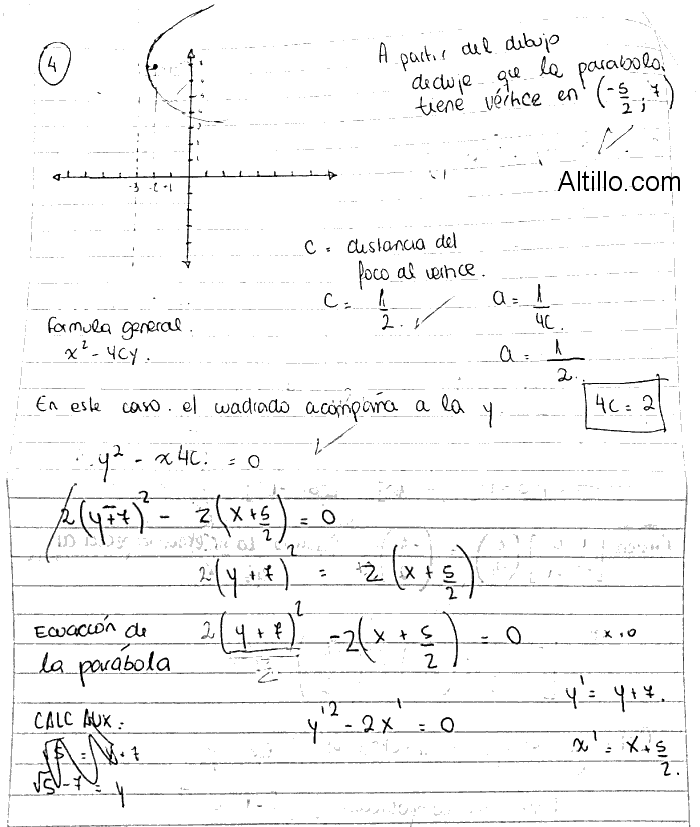 4
A partir del dibujo
deduje que la parabola
tiene vértice en (-5/2 ; 7)
Altillo.com
-3 -2 -1
C = distancia del
foco al vertice.
C = 1/2.
a = 1/4c.
a = 1/2.
4C = 2
Formula general.
x² - 4cy.
En este caso. el cuadrado acompaña a la y
y² - x4C. = 0
2(y+7)² - 2(x+5/2) = 0
2(y+7)² = 2(x+5/2)
Ecuacción de
la parábola
2(y+7)² - 2(x+5/2) = 0
2
x,0
y'² - 2x' = 0
y' = y+7.
x' = x+5/2.
CALC AUX:
√5 - 7 = y